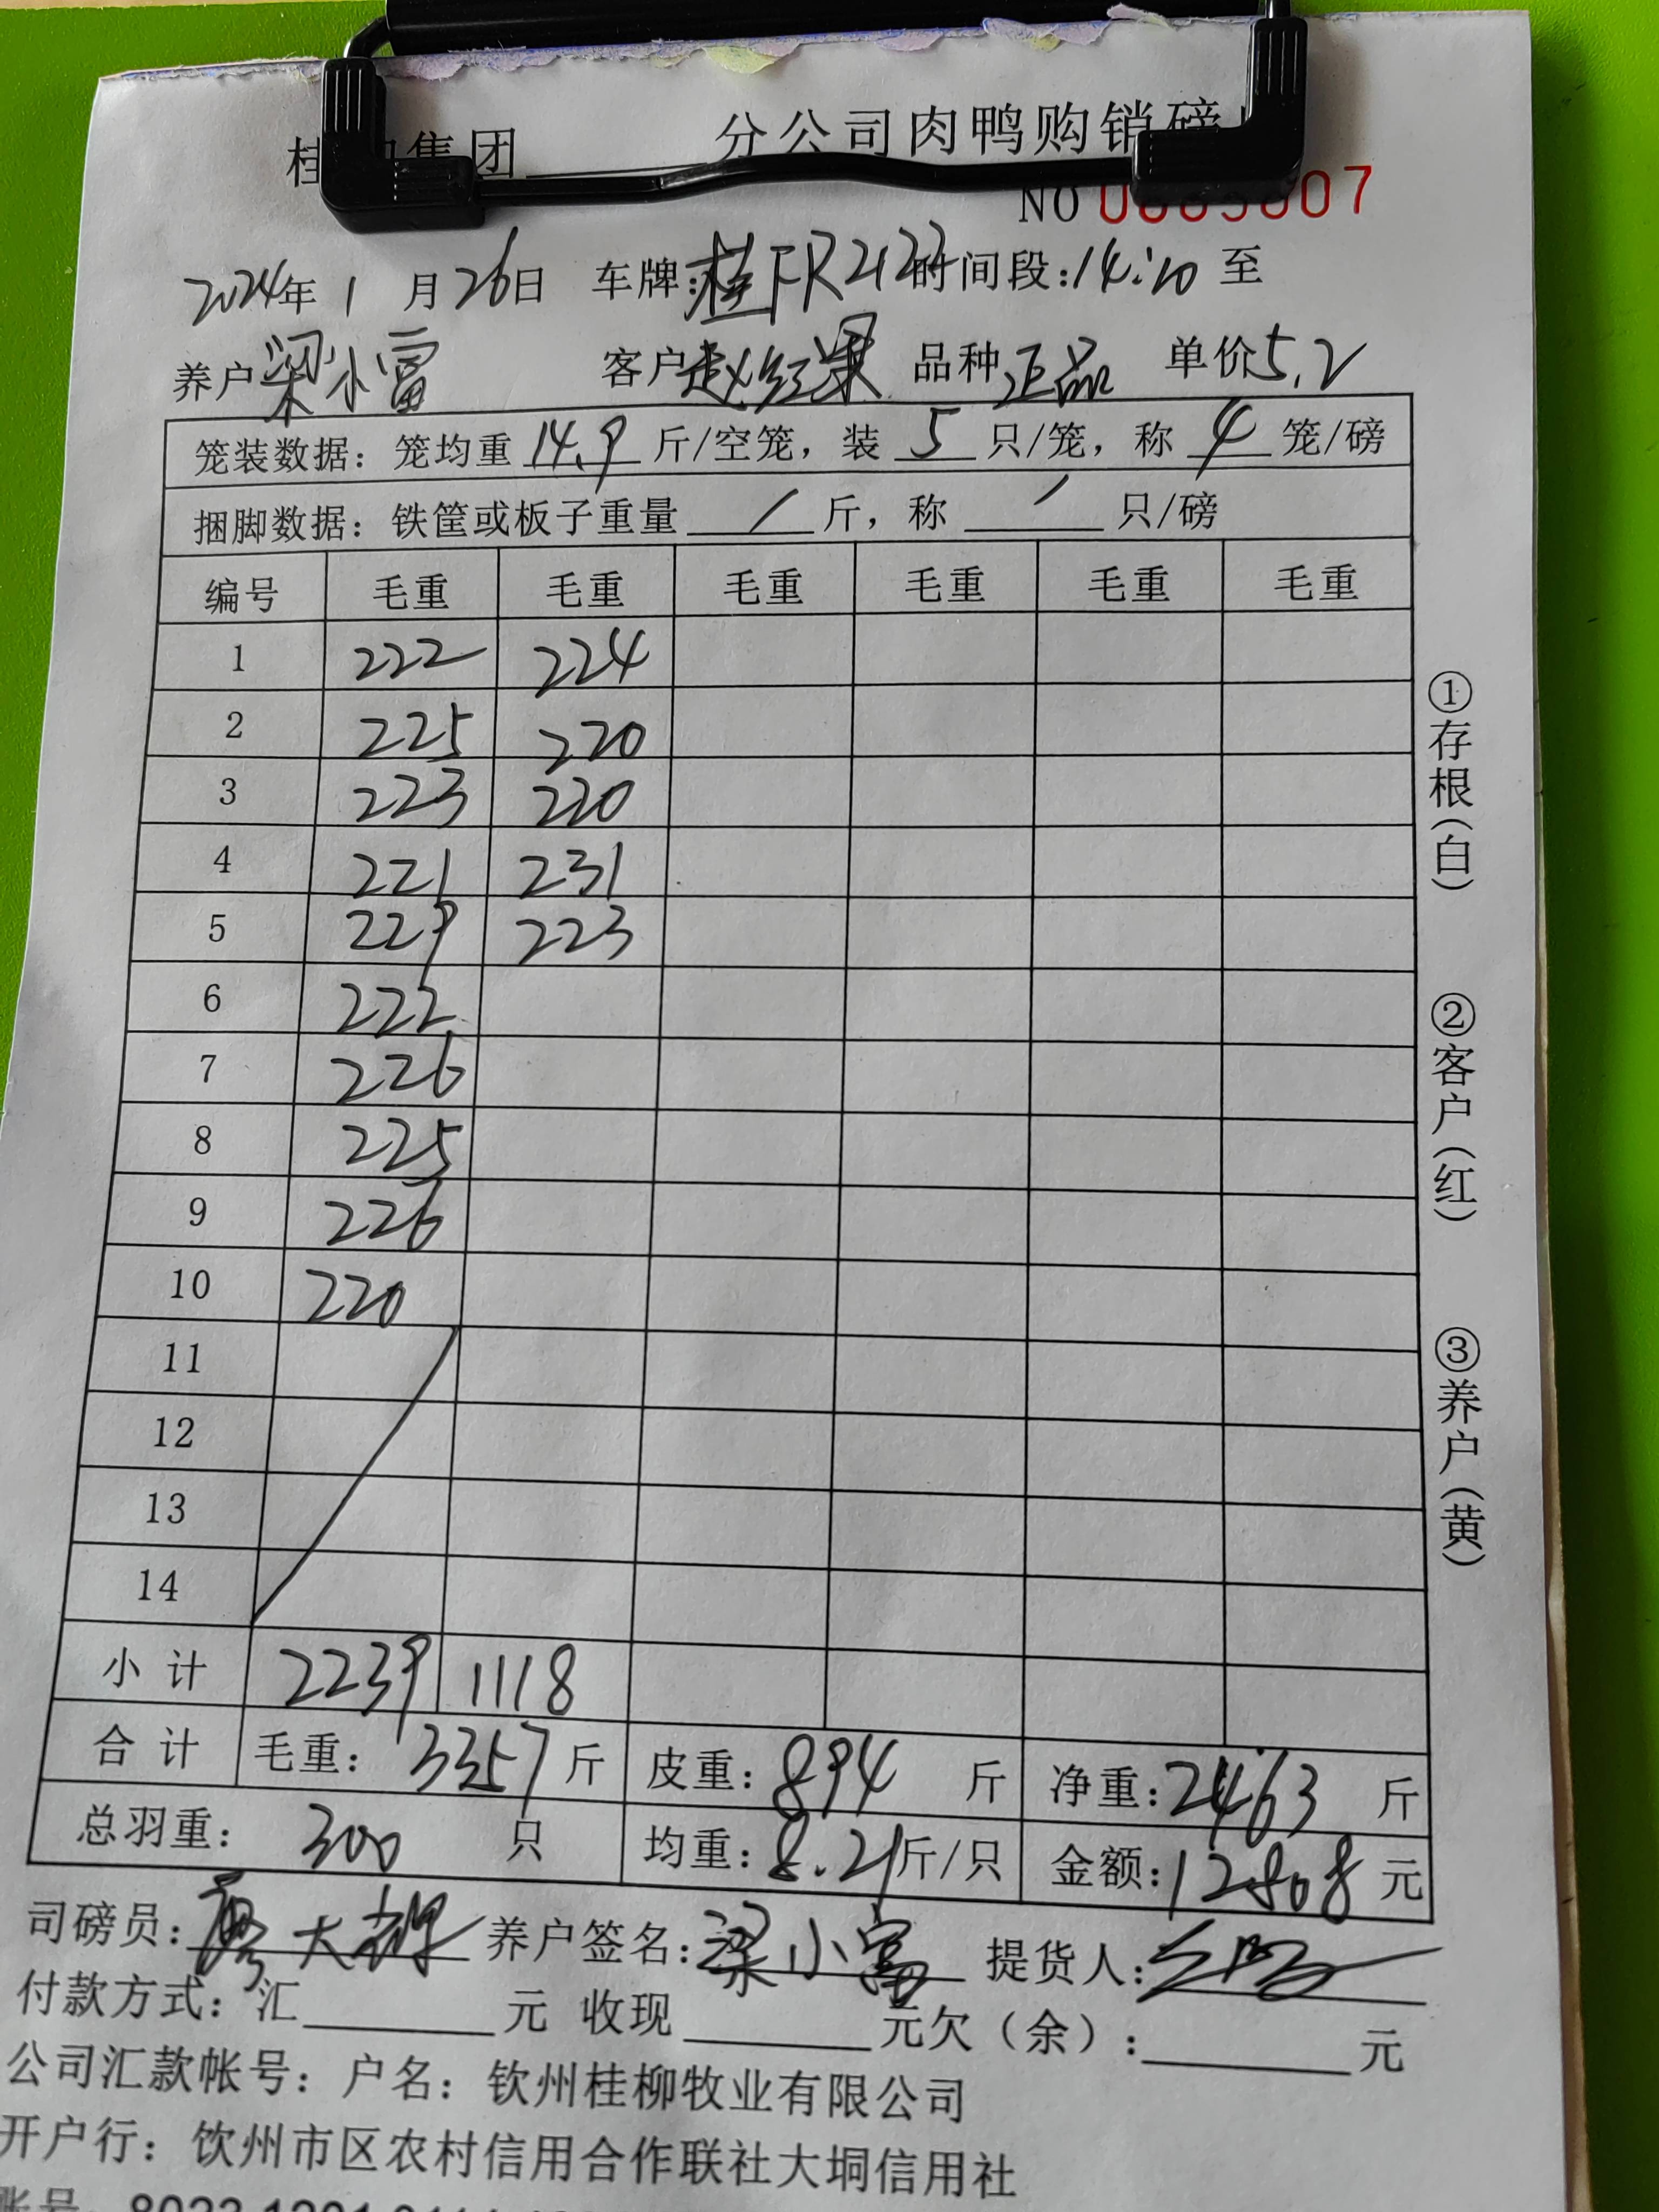 桂 集团 分公司肉鸭购销磅
NO 07
2024年 1 月 26日 车牌:桂FR2122 时间段:14:20 至
养户 梁小富 客户 赵红果 品种 正品 单价 5.2
笼装数据：笼均重 14.9 斤/空笼，装 5 只/笼，称 4 笼/磅
捆脚数据：铁筐或板子重量 / 斤，称 / 只/磅
编号 毛重 毛重 毛重 毛重 毛重 毛重
1 222 224
2 225 220
3 223 220
4 221 231
5 229 223
6 222
7 226
8 225
9 226
10 220
11
12
13
14
小计 2239 1118
合计 毛重：3357 斤 皮重：894 斤 净重：2463 斤
总羽重： 300 只 均重：8.21斤/只 金额：12808 元
司磅员： 大 养户签名：梁小富 提货人：
付款方式：汇 元 收现 元欠（余）： 元
公司汇款帐号：户名：钦州桂柳牧业有限公司
开户行：钦州市区农村信用合作联社大垌信用社
①存根（白）
②客户（红）
③养户（黄）